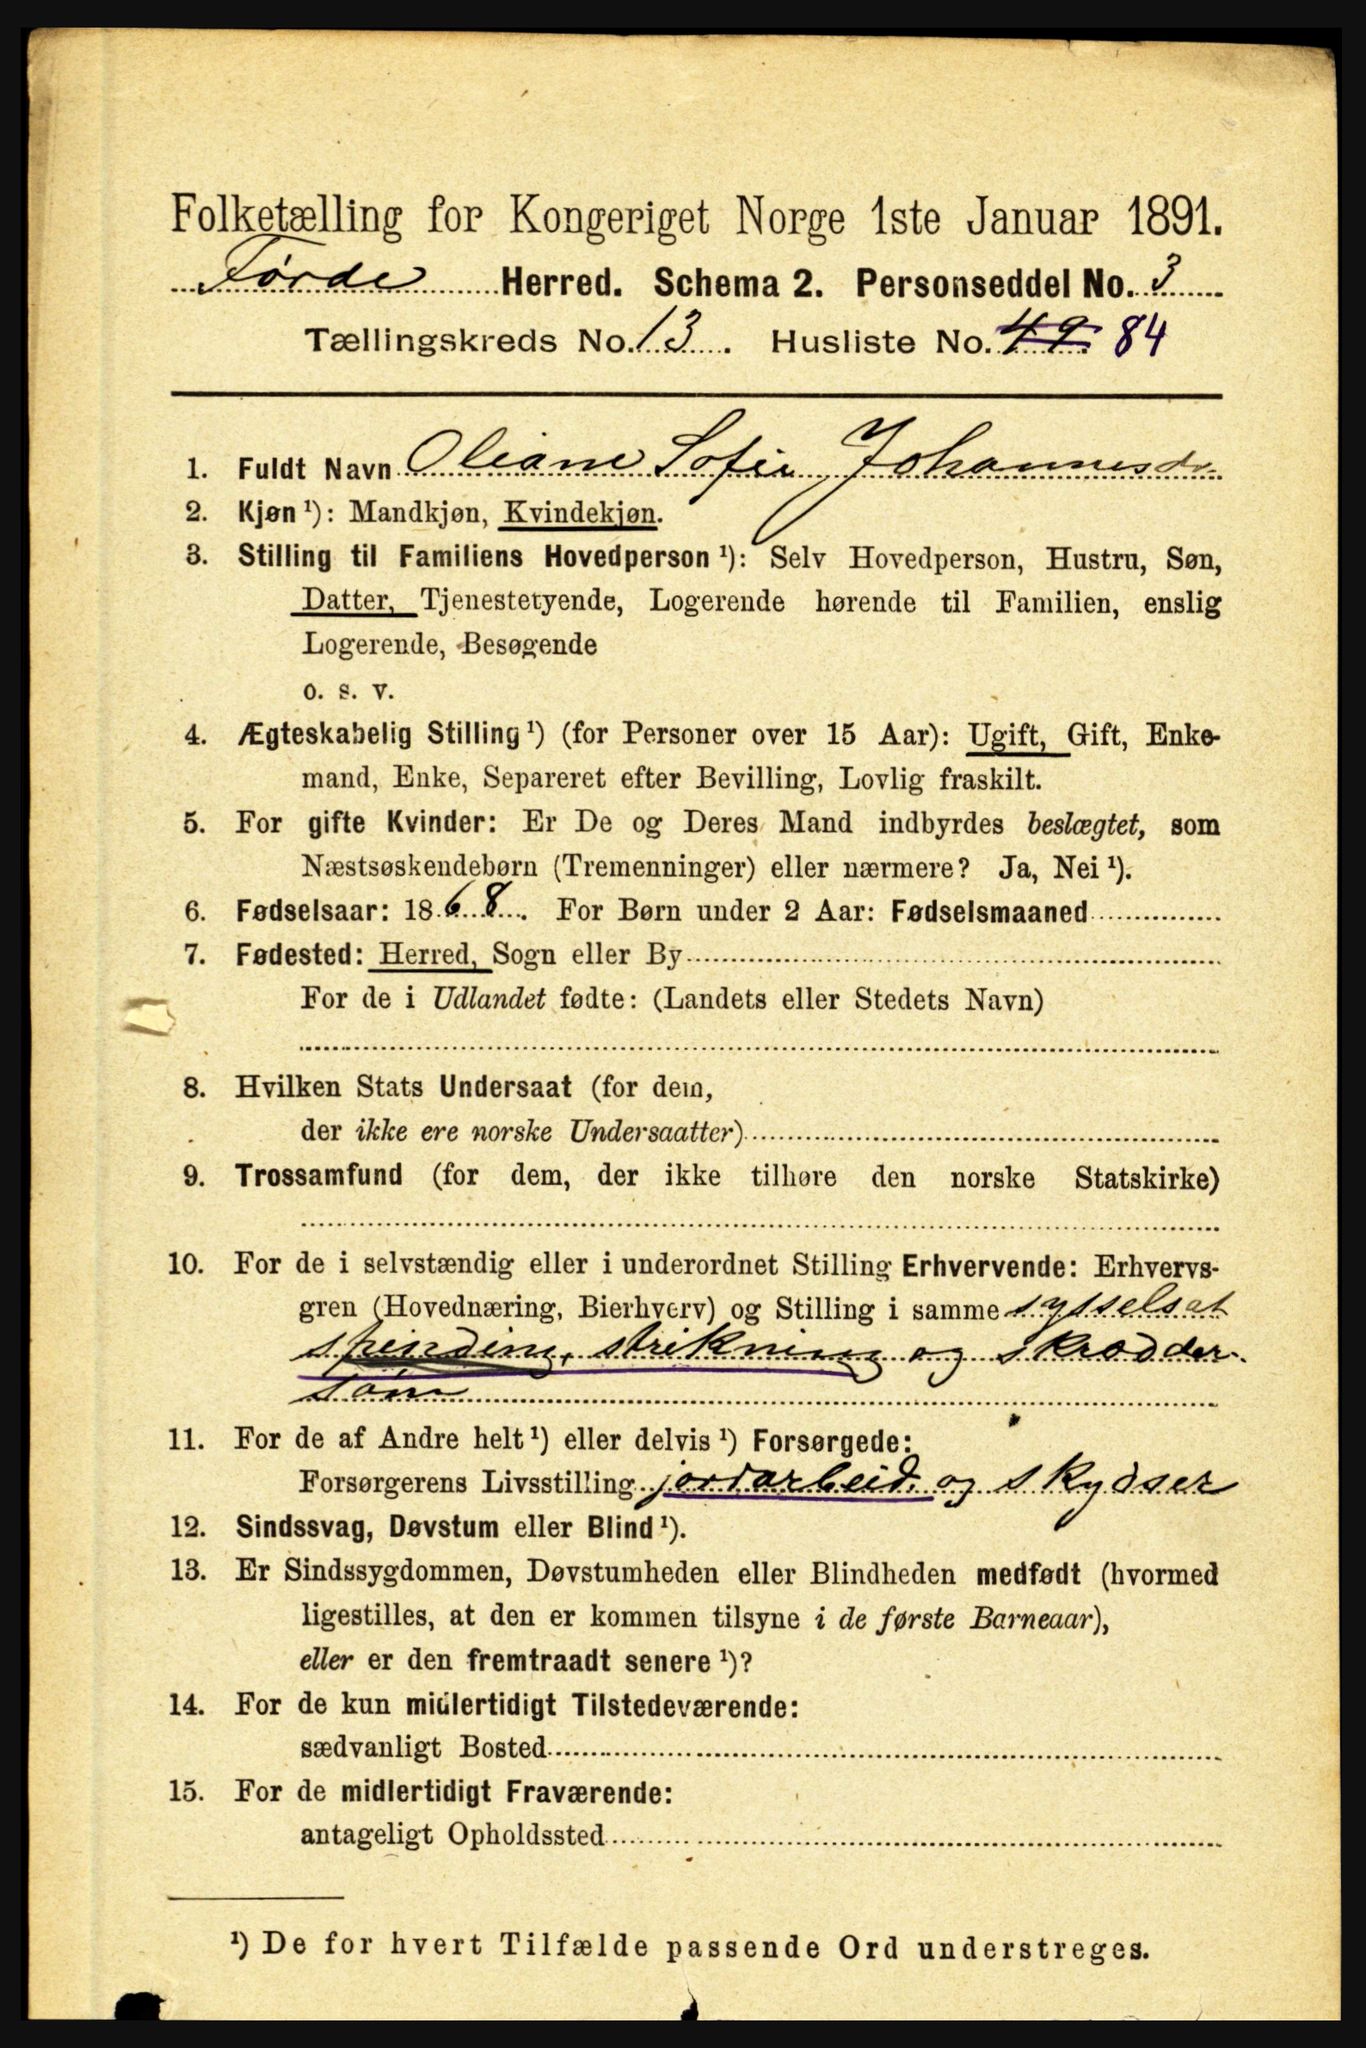 Folketælling for Kongeriget Norge 1ste Januar 1891.
Førde Herred. Schema 2. Personseddel No. 3
Tællingskreds No. 13. Husliste No. 49 84
1. Fuldt Navn Oliane Sofie Johannesdr
2. Kjøn ¹): Mandkjøn, Kvindekjøn.
3. Stilling til Familiens Hovedperson ¹): Selv Hovedperson, Hustru, Søn,
Datter, Tjenestetyende, Logerende hørende til Familien, enslig
Logerende, Besøgende
o. s. v.
4. Ægteskabelig Stilling ¹) (for Personer over 15 Aar): Ugift, Gift, Enke-
mand, Enke, Separeret efter Bevilling, Lovlig fraskilt.
5. For gifte Kvinder: Er De og Deres Mand indbyrdes beslægtet, som
Næstsøskendebørn (Tremenninger) eller nærmere? Ja, Nei ¹).
6. Fødselsaar: 1868. For Børn under 2 Aar: Fødselsmaaned
7. Fødested: Herred, Sogn eller By
For de i Udlandet fødte: (Landets eller Stedets Navn)
8. Hvilken Stats Undersaat (for dem,
der ikke ere norske Undersaatter)
9. Trossamfund (for dem, der ikke tilhøre den norske Statskirke)
10. For de i selvstændig eller i underordnet Stilling Erhvervende: Erhvervs-
gren (Hovednæring, Bierhverv) og Stilling i samme sysselsat
spinding, strikning og skrædder-
søm
11. For de af Andre helt ¹) eller delvis ¹) Forsørgede:
Forsørgerens Livsstilling jordarbeid. og skydser
12. Sindssvag, Døvstum eller Blind ¹).
13. Er Sindssygdommen, Døvstumheden eller Blindheden medfødt (hvormed
ligestilles, at den er kommen tilsyne i de første Barneaar),
eller er den fremtraadt senere ¹)?
14. For de kun midlertidigt Tilstedeværende:
sædvanligt Bosted
15. For de midlertidigt Fraværende:
antageligt Opholdssted
¹) De for hvert Tilfælde passende Ord understreges.